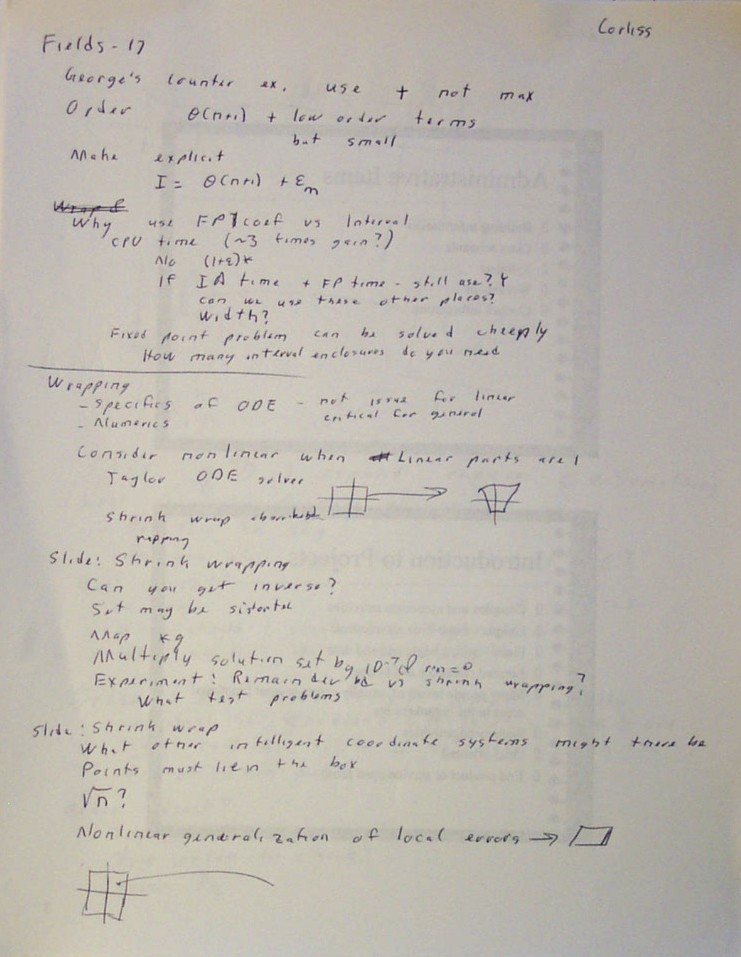 Corliss
Fields - 17
George's counter ex. use + not max
Order Θ(n+1) + low order terms
but small
Make explicit
I = Θ(n+1) + ε_m
Why use FP coef vs Interval
CPU time (~3 times gain?)
No (1+ε)*
If IA time + FP time - still use?
can we use these other places?
Width?
Fixed point problem can be solved cheeply
How many interval enclosures do you need
Wrapping
- Specifics of ODE - not issue for linear
critical for general
- Numerics
Consider nonlinear when Linear parts are 1
Taylor ODE solver
Shrink wrap
Slide: Shrink wrapping
Can you get inverse?
Set may be
Map
Multiply solution set by 10^-7
Experiment: Remainder vs shrink wrapping?
What test problems
Slide: Shrink wrap
What other intelligent coordinate systems might there be
Points must lie in the box
√n?
Nonlinear generalization of local errors →
Administrative Items
Introduction to Projects